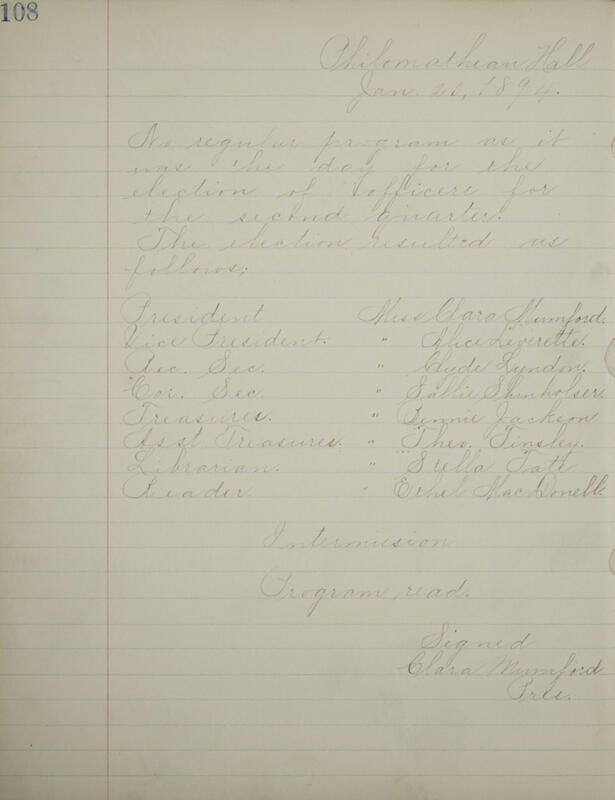 108
Philomathean Hall
Jan. 20, 1894.
No regular program as it
was the day for the
election of officers for
the second quarter.
The election resulted as
follows;
President Miss Clara Mumford.
Vice President. " Alice Leverette.
Rec. Sec. " Clyde Lyndon.
Cor. Sec. " Sallie Shinholser.
Treasures. " Jackson
Asst. Treasures. " Theo. Tinsley.
Librarian. " Stella Tate
Reader " Ethel MacDonell.
Intermission
Program read.
Signed
Clara Mumford
Pres.